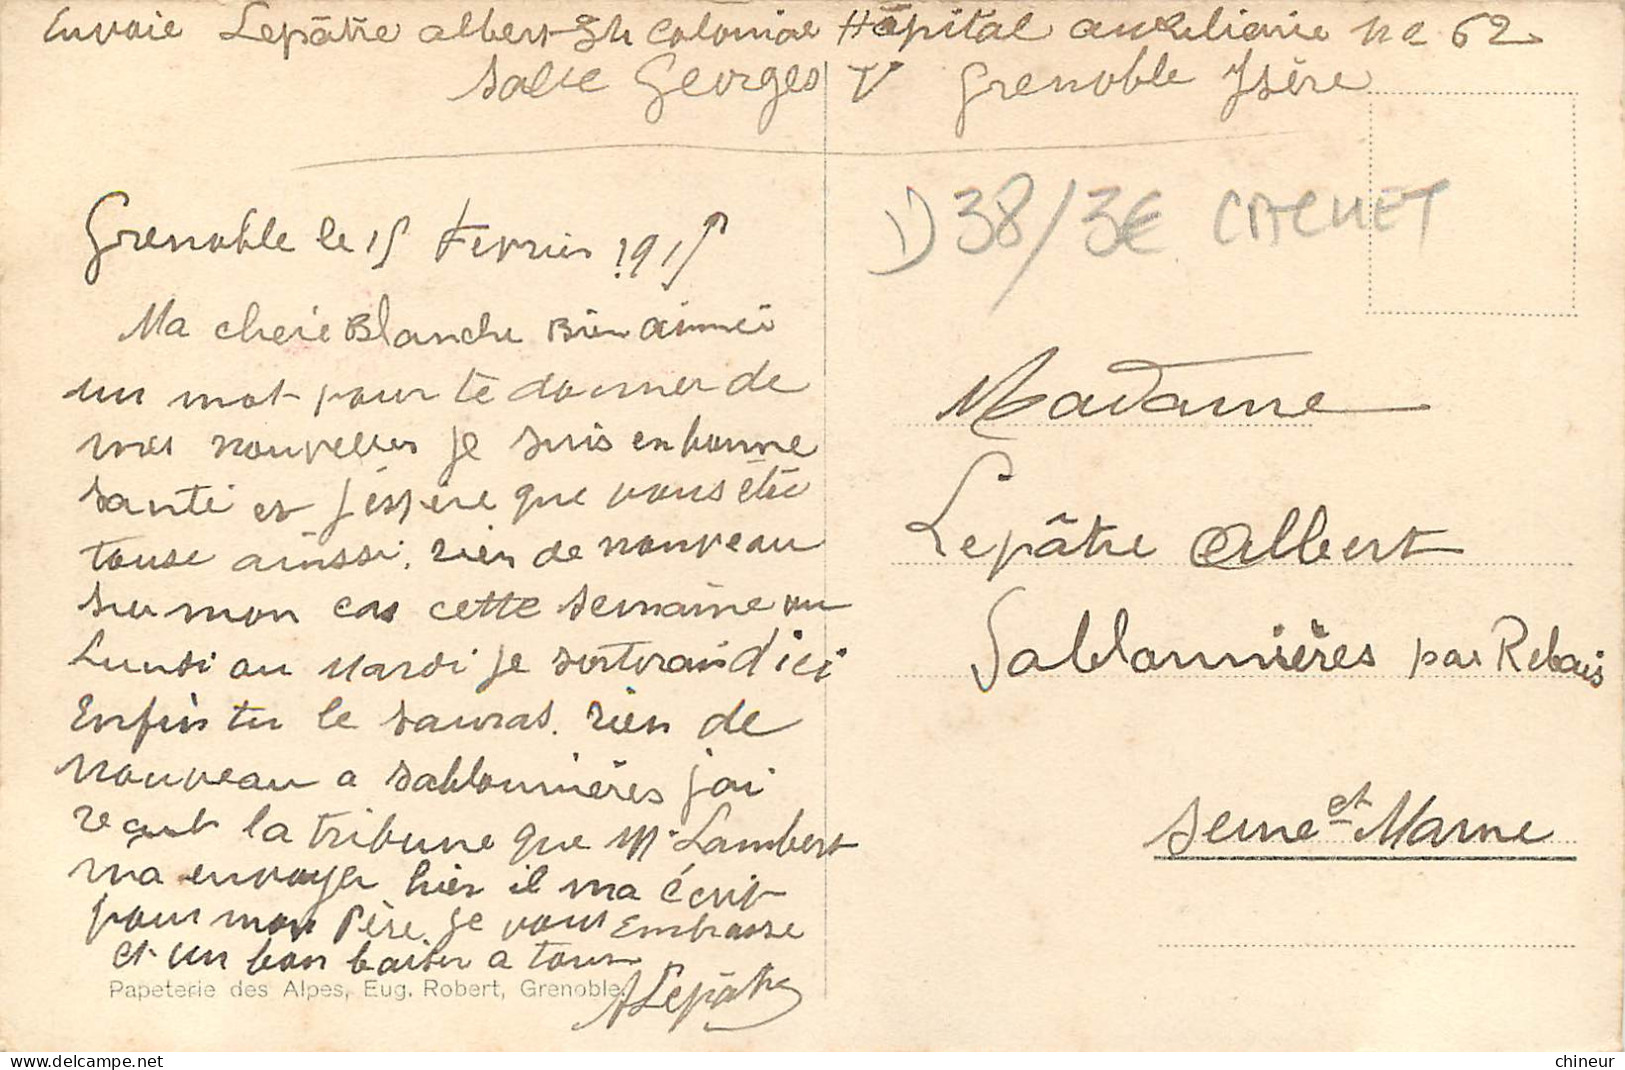 Envoie Lepâtre albert 3h colonial Hôpital auxiliaire no 62
Salle Georges V Grenoble Isère
1) 38 / 3€ CACHET
Grenoble le 15 Fevrier 1915
Ma cherie Blanche Bien aimméi
un mot pour te donner de
mes nouvelles je suis en bonne
santé et j'éspère que vous éte
touse ainssi. rien de nouveau
sur mon cas cette semaine ou
Lundi ou mardi je sortirai d'ici
Enfin tu le sauras. rien de
nouveau a Sablonnières j'ai
reçut la tribune que Mr Lambert
ma envoyer hier il ma écrit
pour mon Père. je vous Embrasse
et un bon baiser a tous
A Lepâtre
Papeterie des Alpes, Eug. Robert, Grenoble.
Madame
Lepâtre Albert
Sablonnières par Rebais
Seine et Marne
delcampe.net
chineur